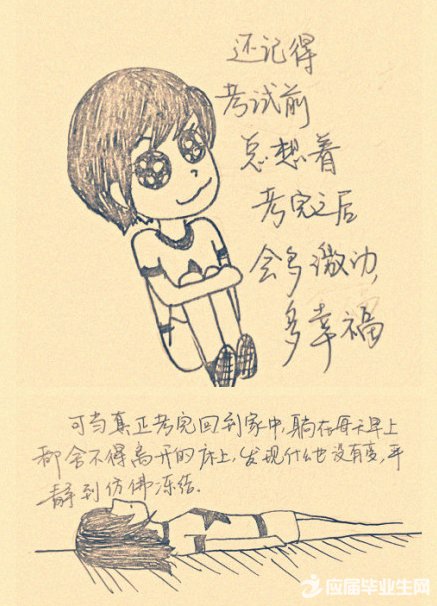 还记得
考试前
总想着
考完之后
会多激动,
多幸福
可当真正考完回到家中,躺在每天早上
都舍不得离开的床上,发现什么也没有变,平
静到仿佛冻结.
应届毕业生网